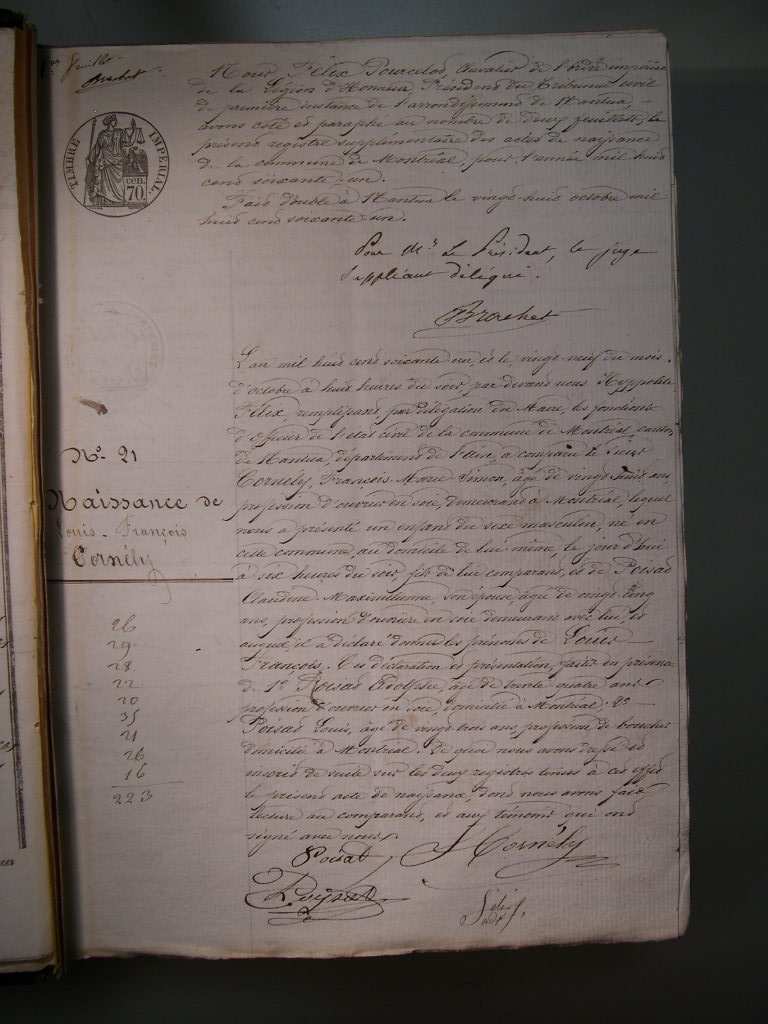 feuillet
Brochet
TIMBRE IMPERIAL
CEN. 70.
Nous Félix Pourcelot, Chevalier de l'ordre impérial
de la Légion d'Honneur, Président du Tribunal civil
de première instance de l'arrondissement de Nantua,
avons coté et paraphé au nombre de deux feuillets, le
présent registre supplémentaire des actes de naissance
de la commune de Montréal pour l'année mil huit
cent soixante-un.
Fait double à Nantua le vingt-huit octobre mil
huit cent soixante-un.
Pour Mr. Le Président, le juge
suppléant délégué.
Brochet
No. 21
Naissance de
Louis-François
Cornély
L'an mil huit cent soixante un, et le vingt-neuf du mois
d'octobre à huit heures du soir, par devant nous Hyppolite
Félix remplissant par délégation du Maire, les fonctions
d'officier de l'état civil de la commune de Montréal canton
de Nantua, département de l'Ain, a comparu le sieur
Cornély, François Marie Simon, âgé de vingt huit ans,
profession d'ouvrier en soie, demeurant à Montréal, lequel
nous a présenté un enfant du sexe masculin, né en
cette commune, au domicile de lui même, le jour d'hui
à six heures du soir, fils de lui comparant, et de Poisat
Claudine Maximilienne, son épouse, âgée de vingt cinq
ans, profession d'ouvrière en soie demeurant avec lui, et
auquel il a déclaré donner les prénoms de Louis
François. Ces déclaration et présentation, faites en présence
de 1º Poisat Adolphe, âgé de trente quatre ans
profession d'ouvrier en soie, domicilié à Montréal; 2º
Poisat Louis, âgé de vingt trois ans, profession de boucher
domicilié à Montréal. De quoi nous avons dressé et
inscrit de suite sur les deux registres tenus à cet effet
le présent acte de naissance, dont nous avons fait
lecture au comparant, et aux témoins qui ont
signé avec nous.
26
29
28
22
20
35
21
26
16
223
Poisat
Cornély
Poisat
Félix